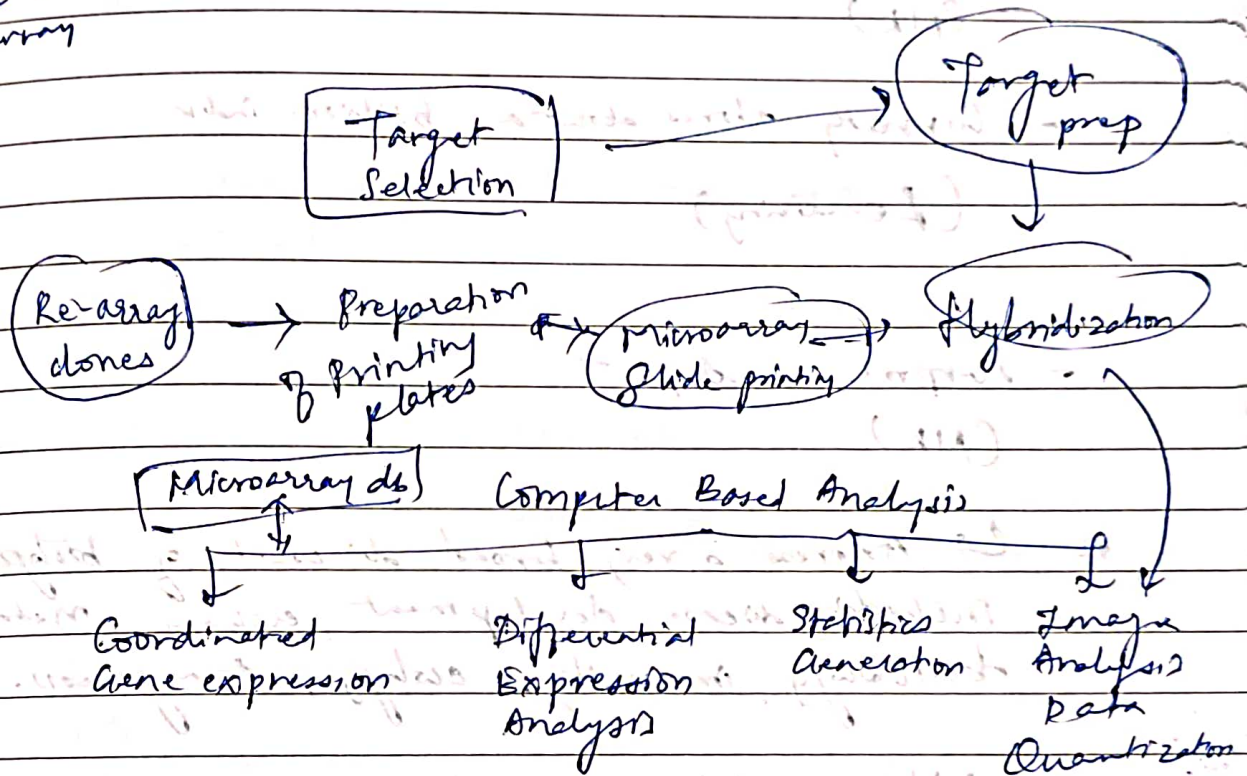 rray
Target
Selection
Target
prep
Re-array
clones
Preparation
of Printing
plates
Microarray
Slide printing
Hybridization
Microarray db
Computer Based Analysis
Coordinated
Gene expression
Differential
Expression
Analysis
Statistics
Generation
Image
Analysis
Data
Quantization